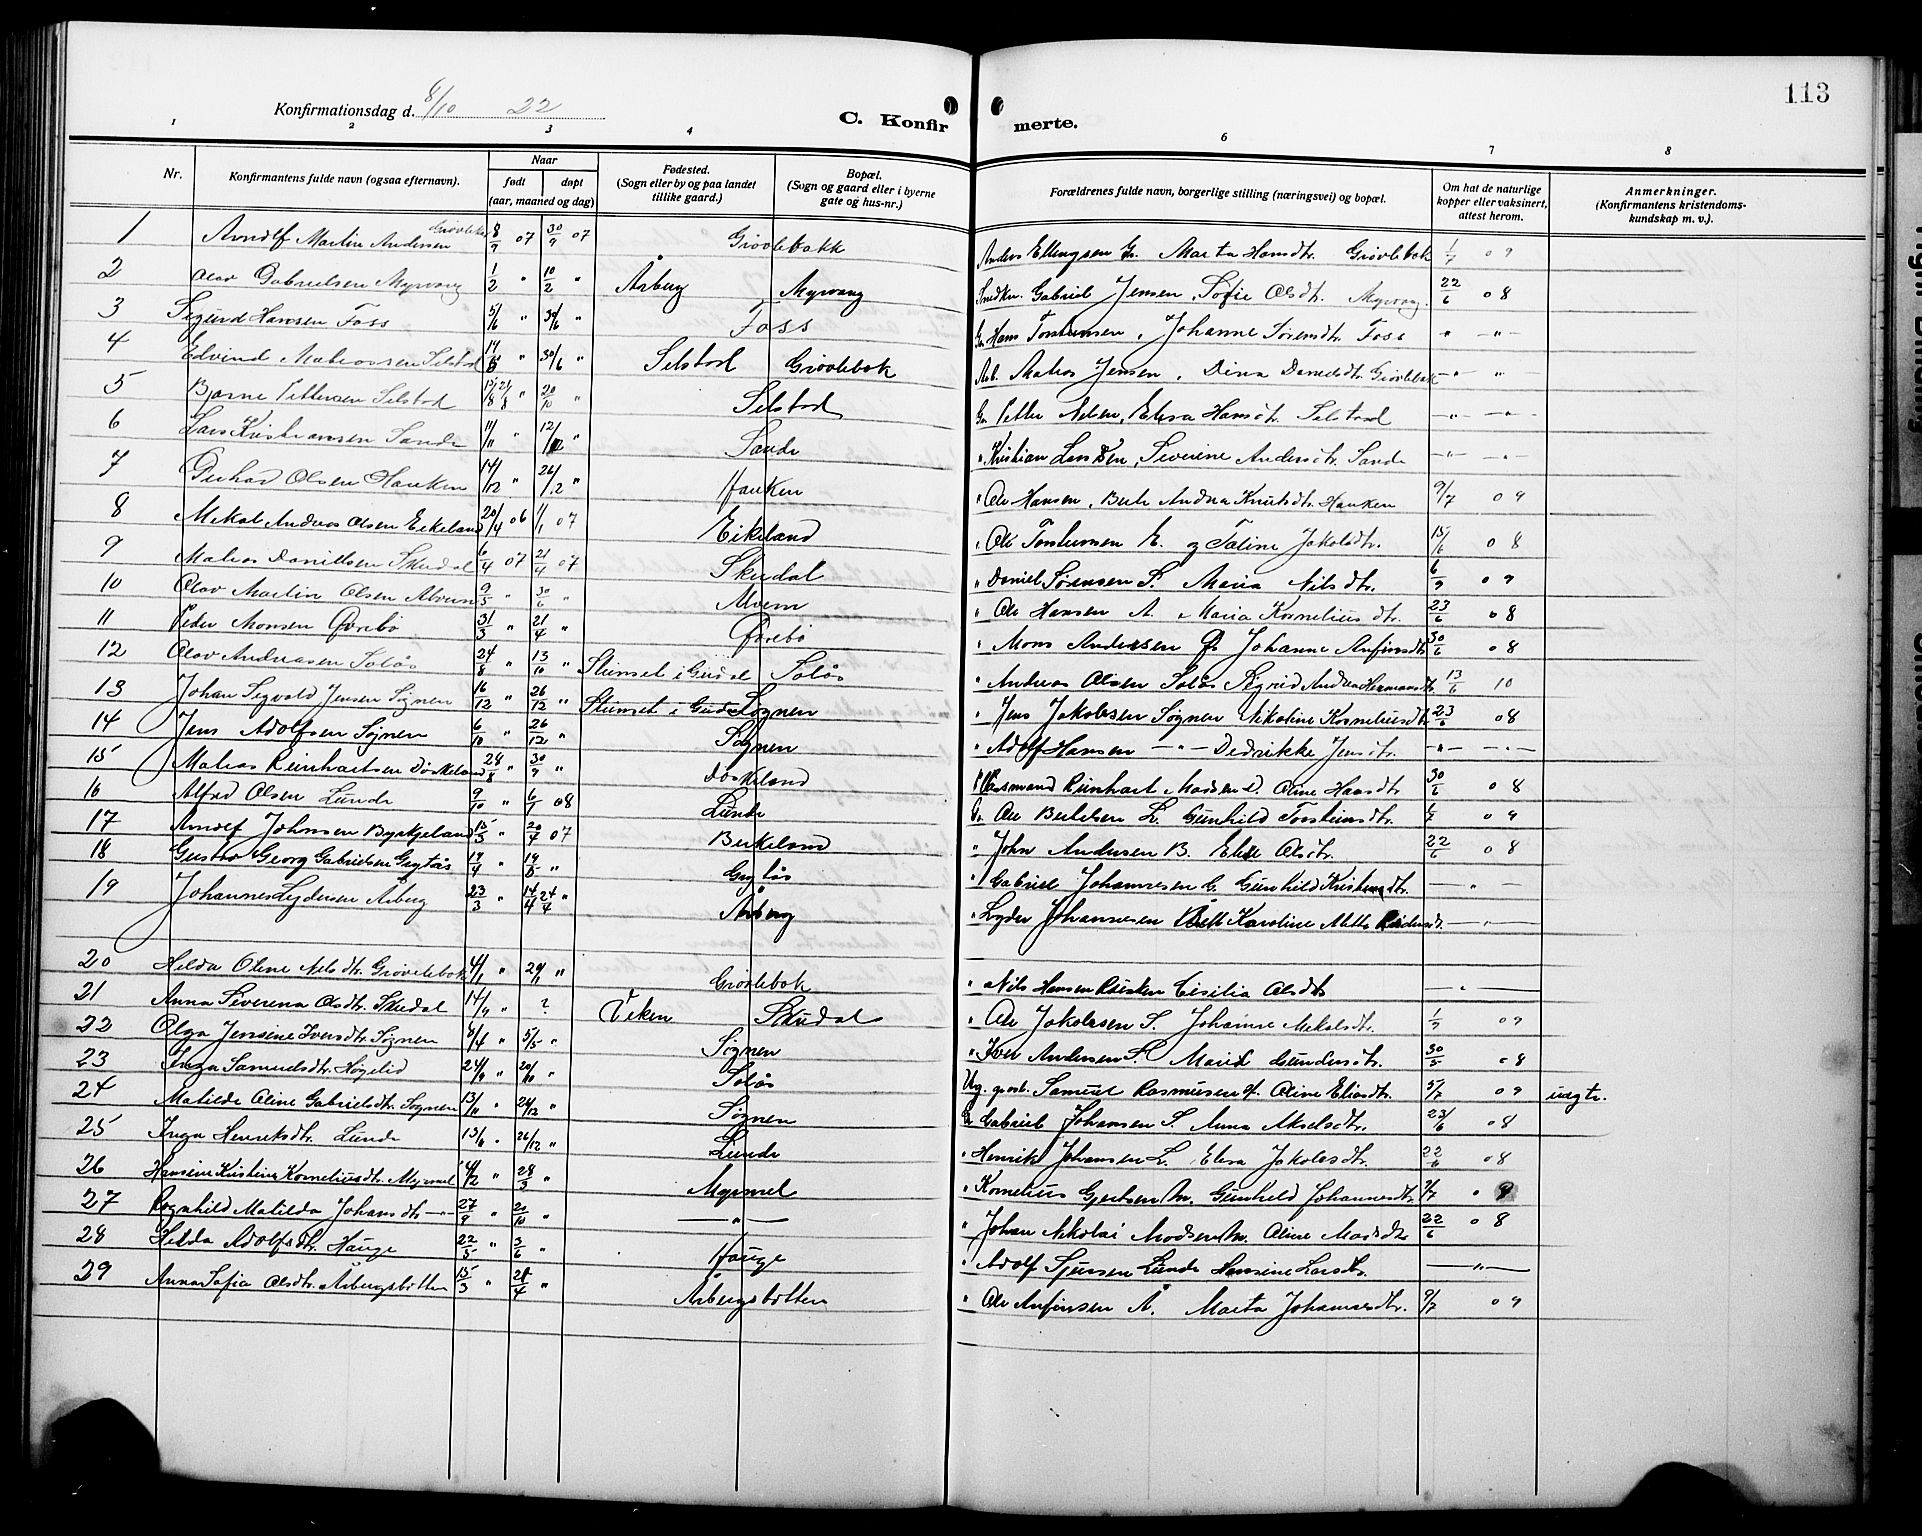 113
Konfirmationsdag d. 8/10 22
C. Konfirmerte.
1 2 3 4 6 7 8
Nr. Konfirmantens fulde navn (ogsaa efternavn). Naar født døpt (aar, maaned og dag) Fødested. (Sogn eller by og paa landet tillike gaard.) Bopæl. (Sogn og gaard eller i byerne gate og hus-nr.) Forældrenes fulde navn, borgerlige stilling (næringsvei) og bopæl. Om hat de naturlige kopper eller vaksinert, attest herom. Anmerkninger. (Konfirmantens kristendoms-kundskap m. v.).
1 Arnolf Martin Andersen 8/9 07 30/9 07 Grøvlebakk Anders Ellingsen G. Marta Hansdtr. Grøvlebak 1/7 09
2 Olav Gabrielsen Myrvang 1/2 " 10/2 " Årberg Myrvang Gabriel Jensen, Sofie Olsdt. Myrvang 22/6 08
3 Sigurd Hansen Foss 5/6 " 30/6 " Foss Hans Torstensen, Johanne Sørensdtr. Foss " - " -
4 Edvind Matiassen Selstad " 30/6 " Selstad Grøvlebak Arb. Matias Jensen, Dina Danielsdtr. Grøvlebak - " - "
5 Bjarne Pettersen Selstad " 20/10 " Selstad Petter Nilsen, Elisa Hansdtr. Selstad - " - " -
6 Lars Kristiansen Sande 11/11 " " Sande " Kristian Larssen, Severine Andersdtr. Sande - " - " -
7 Gerhard Olsen Hauken 14/12 " 26/12 " Hauken " Ole Hansen, Berte Andrea Knutsdtr. Hauken 9/7 09
8 Mikal Andreas Olsen Eikeland 20/4 06 1/1 07 Eikeland " Ole Torstensen E. og Taline Jakobsdtr. 15/6 08
9 Matias Daniellsen Skudal 6/4 07 21/4 07 Skudal " Daniel Sørensen S. Maria Nilsdtr. 6/9 09
10 Olav Martin Olsen Alvern 9/5 " 30/6 " Alvern " Ole Hansen A. Maria Korneliusdtr. 23/6 08
11 Peder Monsen Øvrebø 31/3 " 21/4 " Øvrebø " Mons Andersen Ø. Johanne Anfinsdtr 30/6 08
12 Olav Andreasen Solås 24/8 " 13/10 " i Guldal Solås " Andreas Olsen Solås Sigrid Andrea Hermansdtr. 13/6 10
13 Johan Sigvald Jensen Sognen 16/12 " 26/12 " Sognen " Jens Jakobsen Sognen Nikoline Korneliusdtr 23/6 08
14 Jens Adolfsen Sognen 6/10 " 26/12 " Sognen " Adolf Hansen - " - Didrikke Jensdtr. - " - - " -
15 Matias Reinhartsen Døskeland 28/8 " 30/9 " Døskeland Rasmund Reinhart Madsen D. Oline Hansdtr 30/6 08
16 Alfred Olsen Lunde 9/10 " 6/1 08 Lunde Ole Bertelsen L. Gunhild Torsteinsdtr. 09
17 Arnolf Johnsen Byrkjeland 15/3 " 20/4 07 Birkeland " John Andersen B. Elise Olsdtr. 22/6 08
18 Gustav Georg Gabrielsen Grytås " " Grytås " Gabriel Johannesen G. Gunhild Kristensdtr. - " -
19 Johannes Lydersen Årberg 23/3 " 14/4 24/4 " Årberg " Lyder Johannesen Karoline Mette - " -
20 Hilda Oline Nilsdtr. Grøvlebak 4/1 " " Grøvlebak " Nils Hansen Cisilia Olsdtr - " -
21 Anna Severena Olsdtr. Skudal " ? Viken Skudal " Ole Jakobsen S. Johanne Mikalsdtr. 09
22 Olga Jensine Iversdtr. Sognen 8/4 " 5/5 " Sognen " Iver Andersen S. Marie Gundersdtr. 30/5 08
23 Inga Samuelsdtr. Høgelid 24/9 " 20/10 " Solås Samuel Rasmussen H. Oline Eliasdtr. 5/7 09 udgtr.
24 Matilde Oline Gabrielsdtr. Sognen 13/11 " 26/12 " Sognen Gabriel Johansen S. Anna Akselsdtr. 23/6 08
25 Inga Henriksdtr. Lunde " 26/12 " Lunde " Henrik Johansen L. Elisa Jakobsdtr. 22/6 08
26 Hansine Kristine Korneliusdtr. Myrmel " 28/3 " Myrmel " Kornelius Gjertsen M. Gunhild Johannesdtr. 9/7
27 Ragnhild Matilda Johansdtr. - " - 27/9 " 20/10 " - " - " Johan Nikolai Madsen M. Oline Madsdtr 22/6 08
28 Hilda Adolfsdtr. Hauge 22/5 " 3/6 " Hauge " Adolf Sjursen Lunde Hansine Larsdtr. - " -
29 Anna Sofia Olsdtr. Årbergsbotten 15/3 " 21/4 " Årbergsbotten " Ole Anfinsen Å. Marta Johannesdtr. 9/7 09